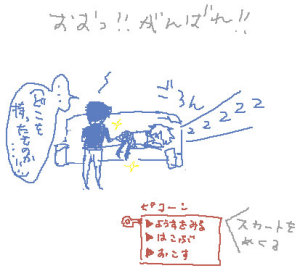 おおっ!!がんばれ!!
…
どこを
持ったものか
……
ごろん
zzzzz
ピコーン
▶ようすをみる
▶はこぶ
▶おこす
スカートを
めくる